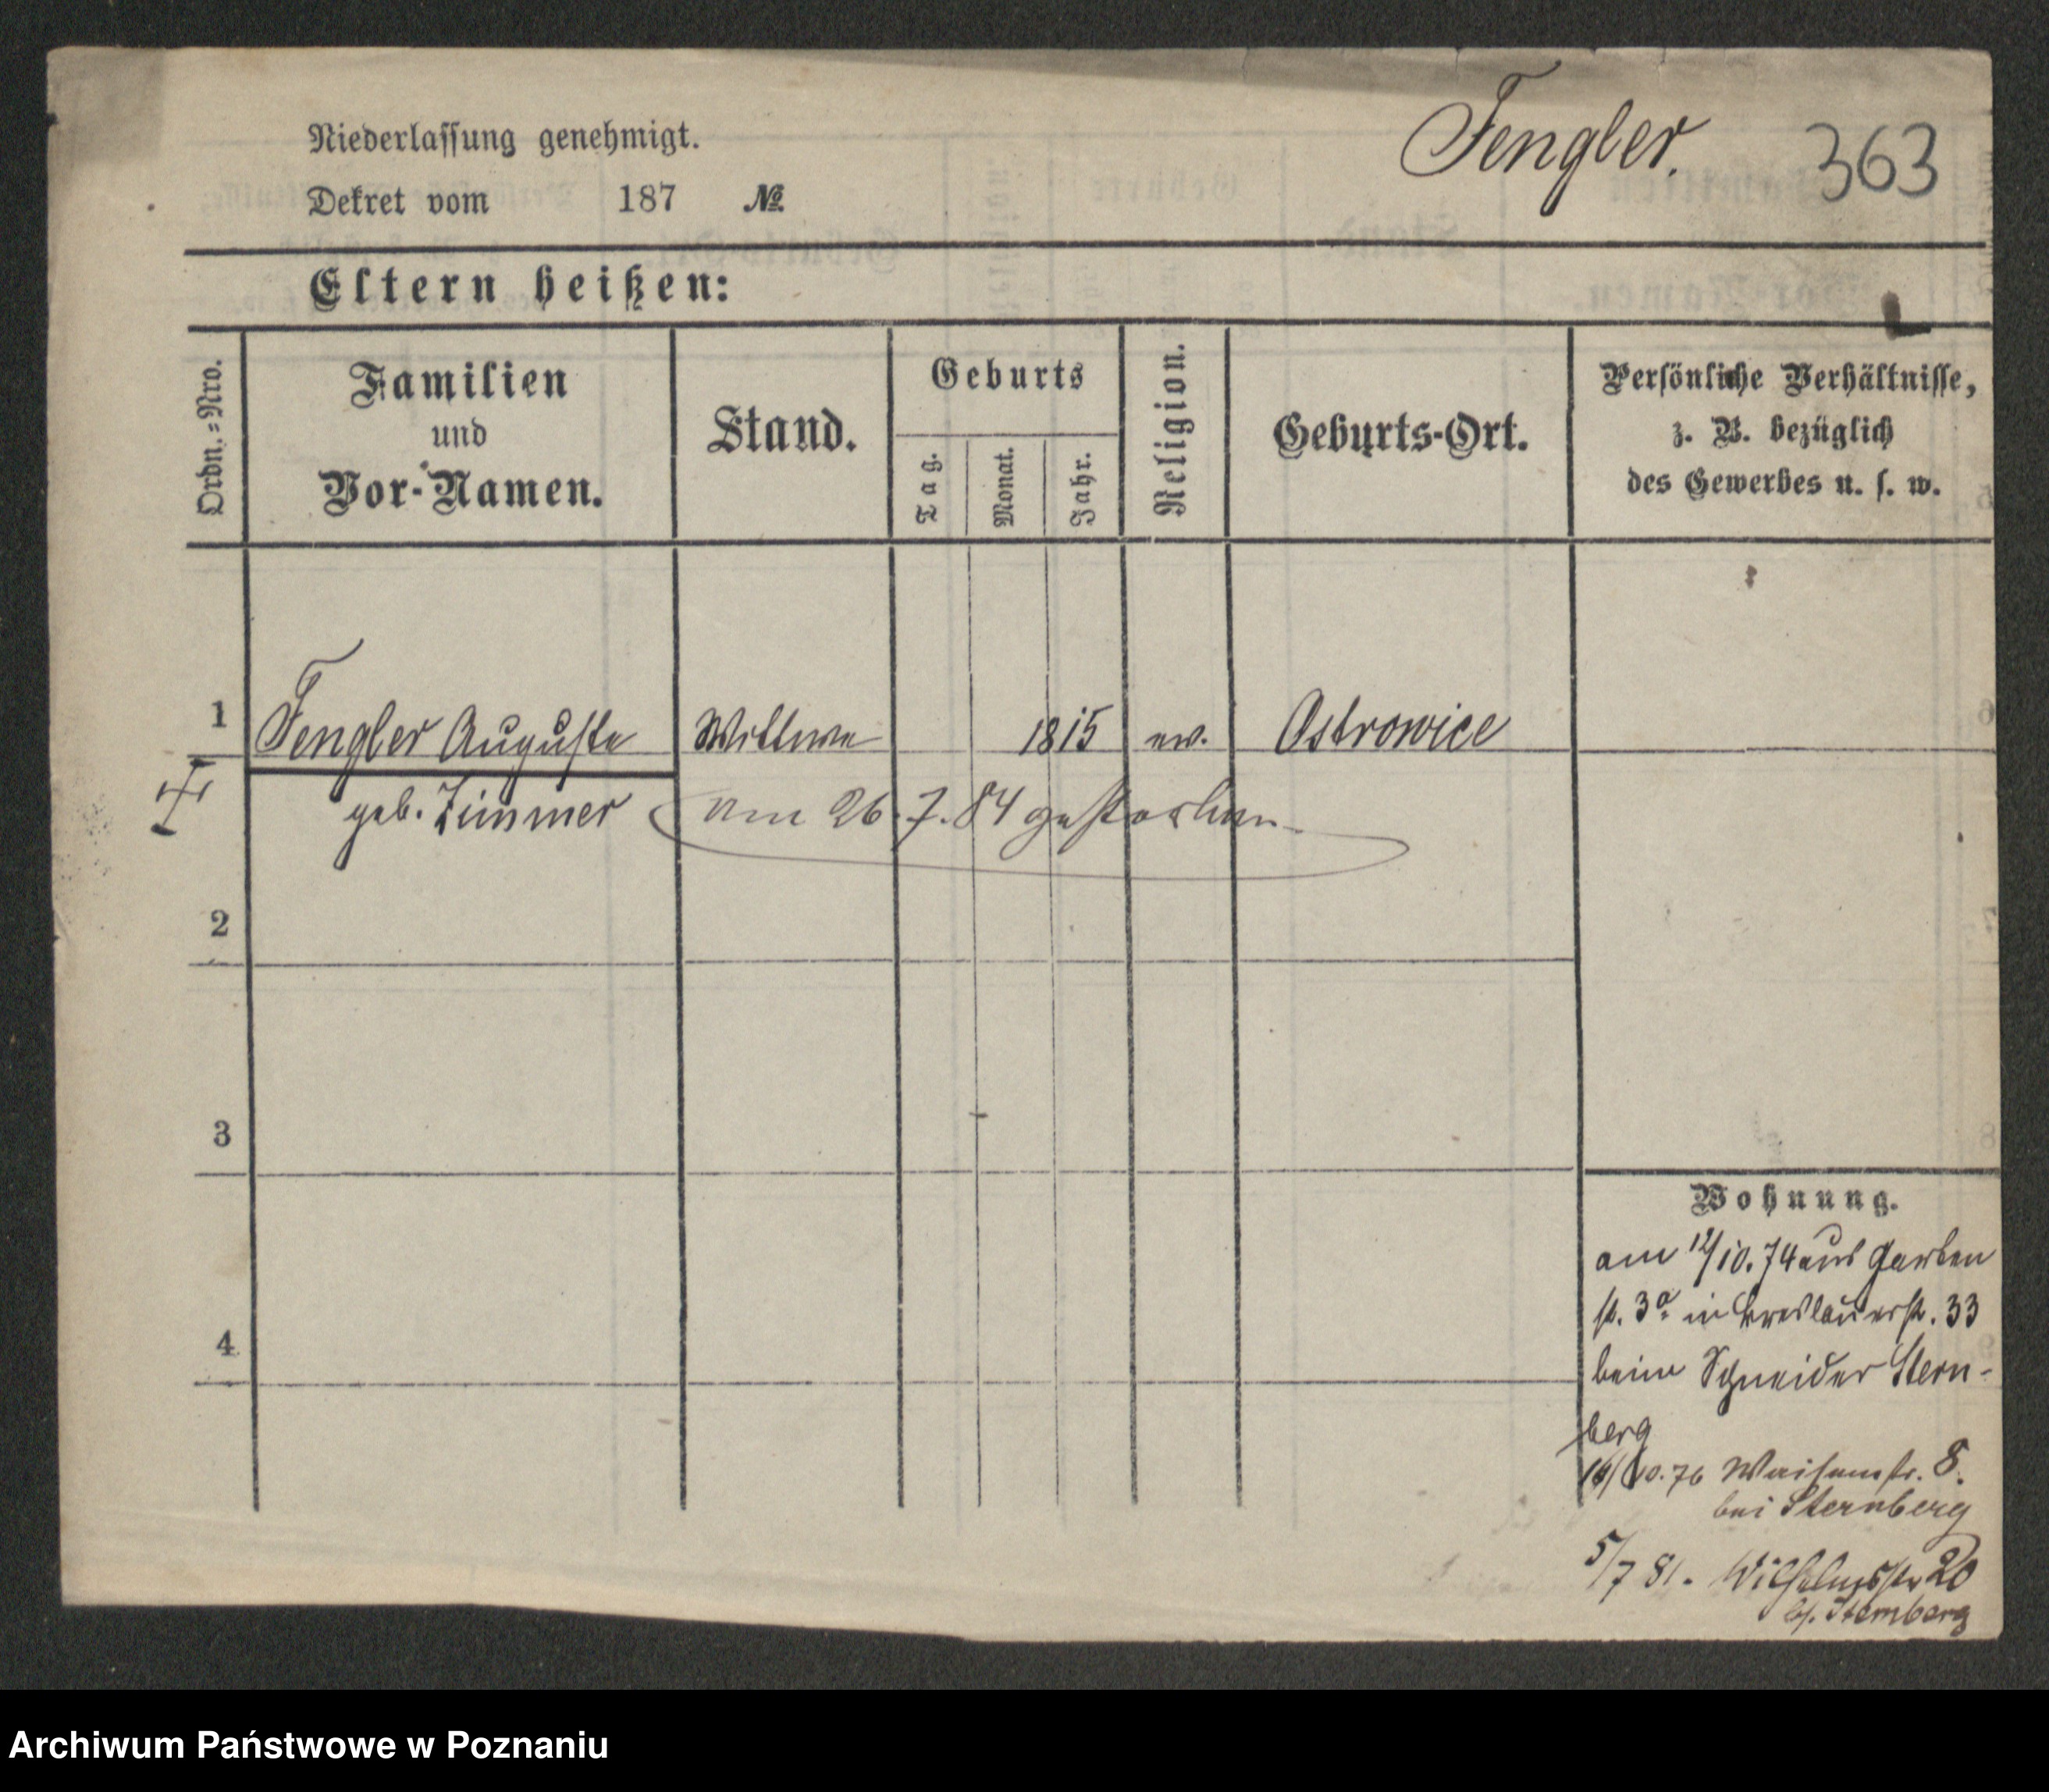 Niederlassung genehmigt.
Fengler. 363
Dekret vom 187 №
Eltern heißen:
Ordn.=Nro.
Familien
und
Vor-Namen.
Stand.
Geburts
Tag. Monat. Jahr.
Religion.
Geburts-Ort.
Persönliche Verhältnisse,
z. B. bezüglich
des Gewerbes u. s. w.
1 Fengler Auguste Wittwe 1815 ev. Ostrowice
geb. Zimmer am 26.7.84 gestorben
2
3
4
Wohnung.
am 12/10.74 aus Garten
st. 3a in Breslauerst. 33
beim Schneider Stern-
berg
10.76 Waisenstr. 8.
bei Sternberg
5/7 81. Wilhelmsstr 20
b/. Sternberg
Archiwum Państwowe w Poznaniu